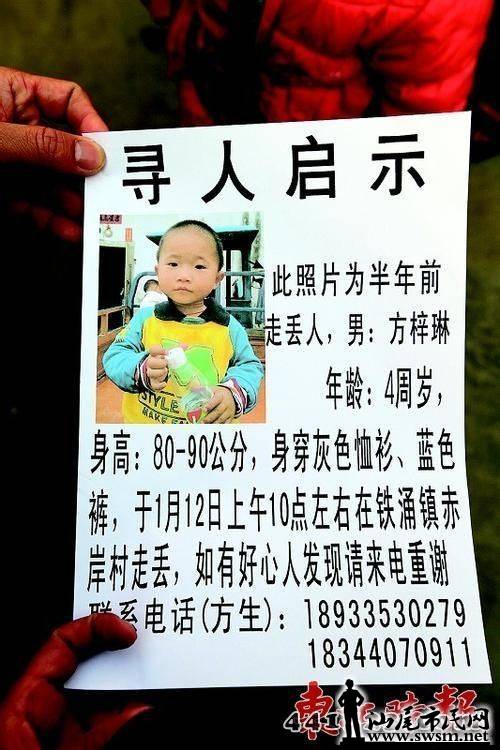 寻人启示
此照片为半年前
走丢人，男：方梓琳
年龄：4周岁，
身高：80-90公分，身穿灰色恤衫、蓝色
裤，于1月12日上午10点左右在铁涌镇赤
岸村走丢，如有好心人发现请来电重谢
联系电话(方生)：18933530279
18344070911
STYLE
441 汕尾市民网
www.swsm.net